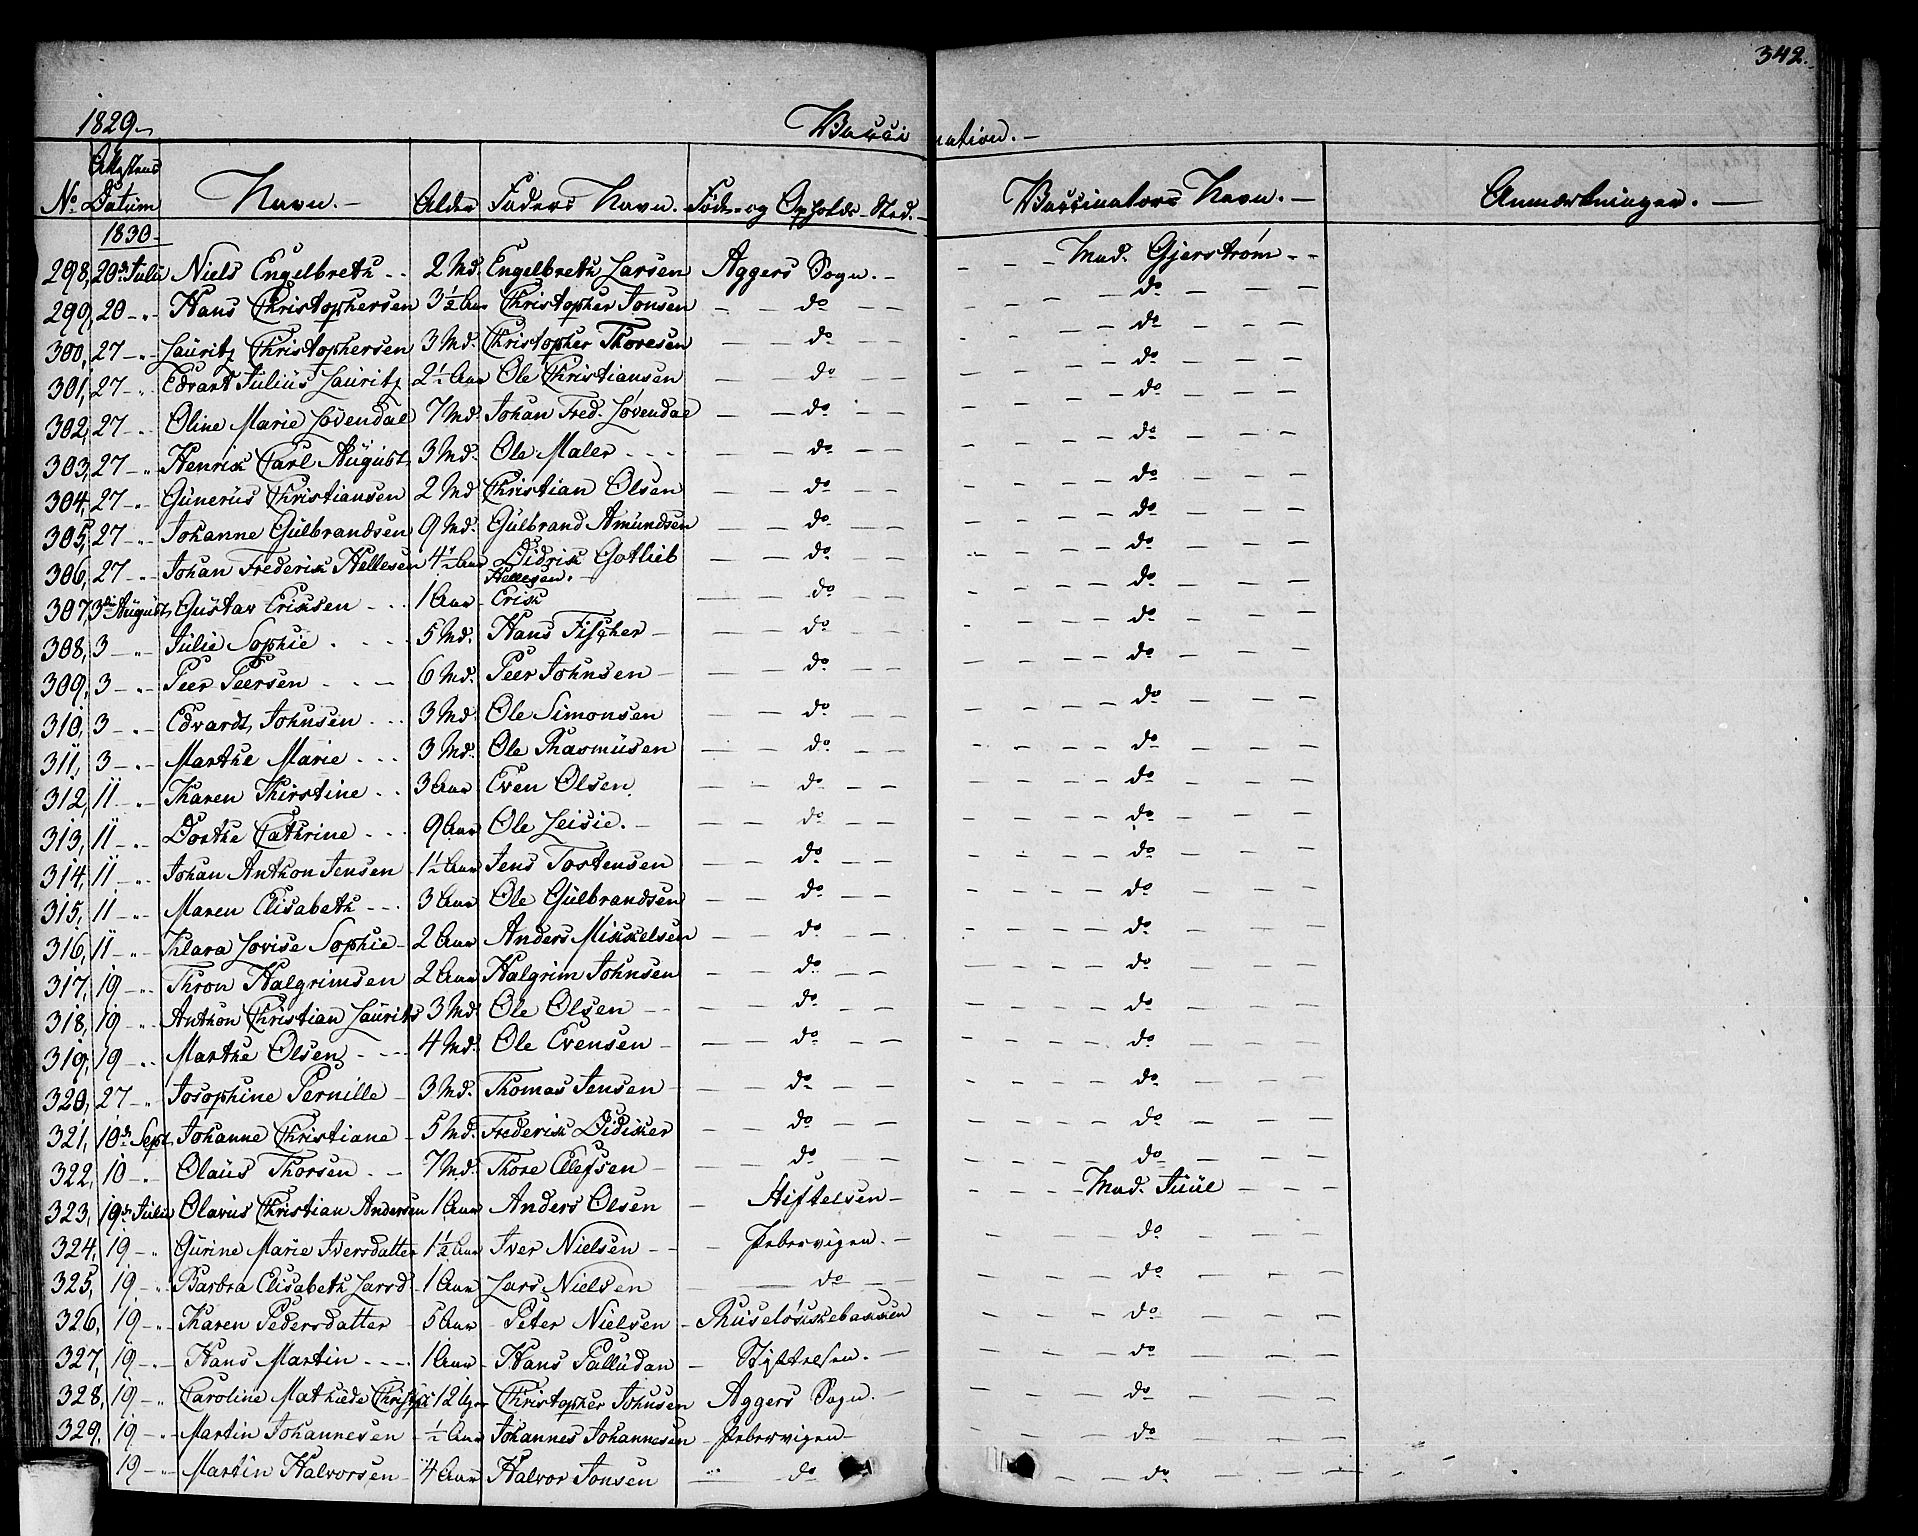 342.
1829.
Vacci nation.
No. Attestens Datum Navn. Alder Faders Navn. Føde- og Opholds-Sted. Vaccinators Navn. Anmærkninger.
1830
298, 20de Julii Niels Engelbreth 2 Md. Engelbreth Larsen Aggers Sogn. Mad. Gjerstrøm
299, 20 - „ Hans Christophersen 3½ Aar Christopher Jonsen do do
300, 27 - „ Lauritz Christophersen 3 Md. Christopher Thoresen do do
301, 27 - „ Edvart Julius Lauritz 2½ Aar Ole Christiansen do do
302, 27 - „ Oline Marie Lövendal 7 Md. Johan Fred. Løvendal do do
303, 27 - „ Henrik Carl August 3 Md. Ole Maler do do
304, 27 - „ Gunerus Christiansen 2 Md Christian Olsen do do
305, 27 - „ Johanne Gulbrandsen 9 Md. Gulbrand Amundsen do do
306, 27 - „ Johan Frederik Hellesen 4½ Aar Didrik Gotlieb Hellesen. do do
307, 3die August Gustav Eriksen 1 Aar Erik do do
308, 3 - „ Julie Sophie 5 Md. Hans Fischer do do
309, 3 - „ Peer Peersen 6 Md. Peer Johnsen do do
310, 3 - „ Edvardt Johnsen 3 Md. Ole Simonsen do do
311, 3 - „ Marthe Marie 3 Md. Ole Rasmusen do do
312, 11 - „ Karen Kirstine 3 Aar Even Olsen do do
313, 11 - „ Dorthe Cathrine 9 Aar Ole Leisie. do do
314, 11 - „ Johan Anthon Jensen 1½ Aar Jens Tostensen do do
315, 11 - „ Maren Elisabeth 3 Aar Ole Gulbrandsen do do
316, 11 - „ Klara Lovise Sophie 2 Aar Anders Mikkelsen do do
317, 19 - „ Thron Halgrimsen 2 Aar Halgrim Johnsen do do
318, 19 - „ Anthon Christian Laurits 3 Md Ole Olsen do do
319, 19 - „ Marthe Olsen 4 Md. Ole Evensen do do
320, 27 - „ Josophine Pernille 3 Md. Thomas Jensen do do
321, 10de Sept. Johanne Christiane 5 Md. Frederik Didisker do do
322, 10 - „ Olaus Thorsen 7 Md. Thore Ellefsen do do
323, 19de Julii Olavus Christian Andersen 1 Aar Anders Olsen Stiftelsen Mad. Juul
324, 19 - „ Gurine Marie Iversdatter 1½ Aar Iver Nielsen Pebervigen. do
325, 19 - „ Barbra Elisabeth Larsd 1 Aar Lars Nielsen do do
326, 19 - „ Karen Pedersdatter 5 Aar Peter Nielsen Ruseløkkebakken do
327, 19 - „ Hans Martin 1 Aar Hans Palludan Styttelsen. do
328, 19 - „ Caroline Mathilde 12 Christopher Johnsen Aggers Sogn. do
329, 19 - „ Martin Johannesen ½ Aar Johannes Johannesen Pebervigen do
19 - „ Martin Halvorsen 4 Aar Halvor Jonsen do do